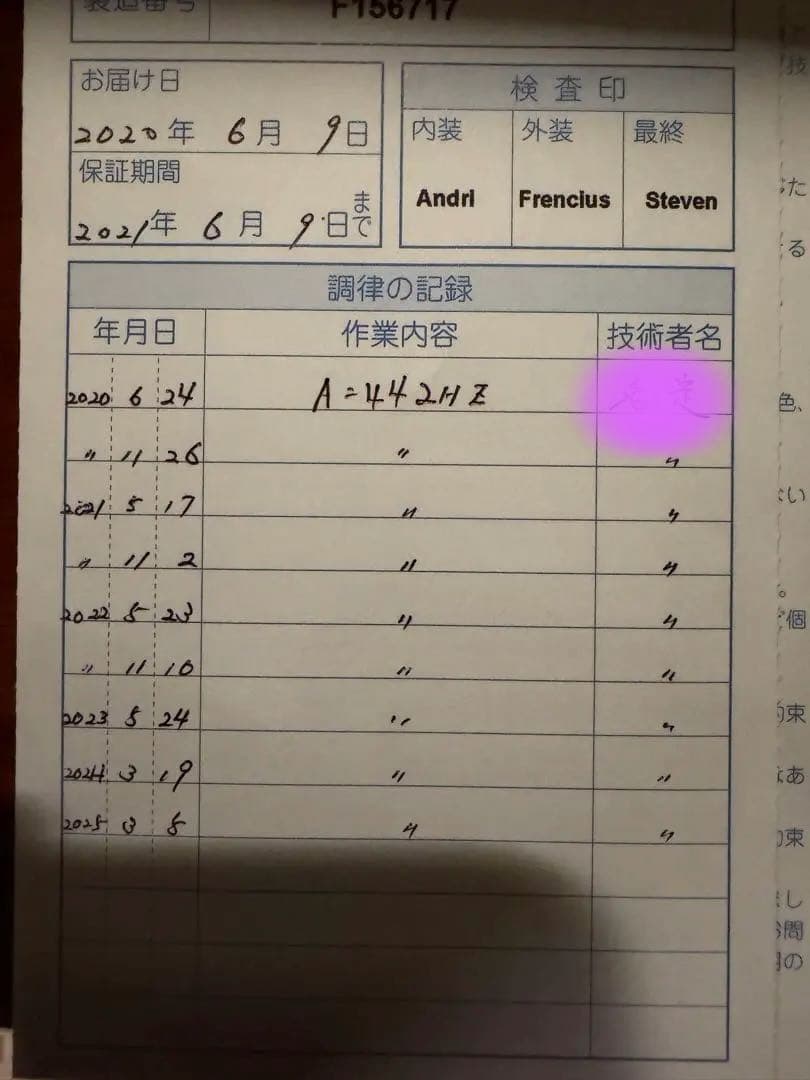 製造番号 F156717
お届け日
2020年 6月 9日
保証期間
2021年 6月 9日まで
検査印
内装 外装 最終
Andri Frencius Steven
調律の記録
年月日 作業内容 技術者名
2020 6 24 A=442HZ
〃 11 26 〃 〃
2021 5 17 〃 〃
〃 11 2 〃 〃
2022 5 23 〃 〃
〃 11 10 〃 〃
2023 5 24 〃 〃
2024 3 19 〃 〃
2025 3 8 〃 〃
技
た
る
色、
い
。
個
約束
なあ
約束
し
問
の